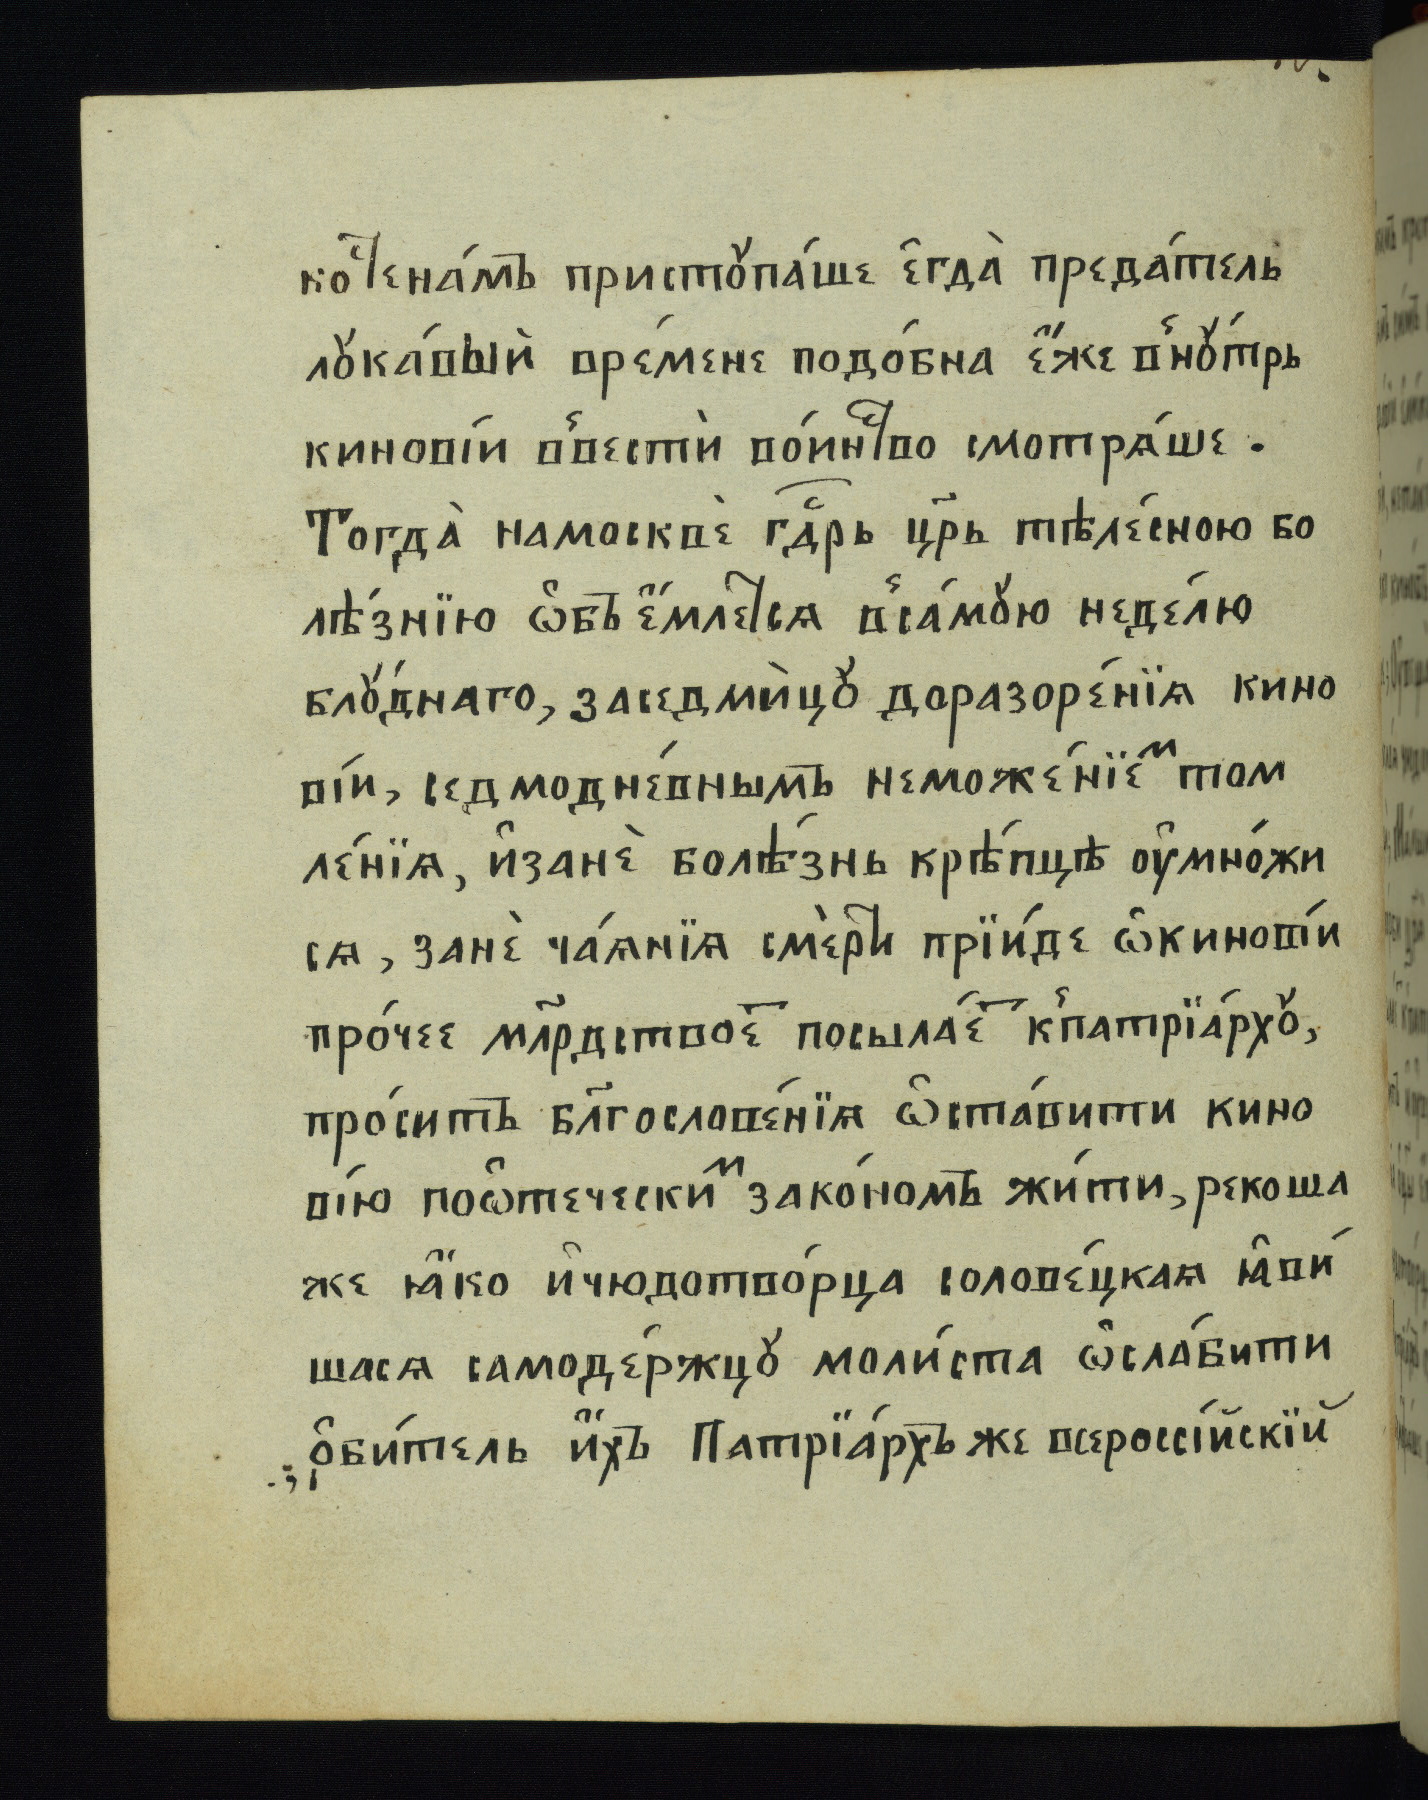 ко стена́мъ пристꙋпа́ше є҆гда̀ преда́тель
лꙋка́выѝ вре́мене подо́бна є҆́же в̾нꙋ́трь
кинові́и в̾вестѝ во́инство смотрѧ́ше.
Тогда̀ намосквѐ гдⷭ҇рь цр҃ь тѣле́сною бо
лѣ́знїю ѡ҆бъе҆́млетсѧ в̾са́мꙋю неде́лю
блꙋ́днаго, заседмѝцꙋ доразоре́нїѧ кино
ві́и, седмодне́внымъ неможе́нїе́ⷨ том
ле́нїѧ, и҆занѐ болѣ́знь крѣ́пцѣ ᲂу҆мно́жи
сѧ, занѐ ча́ѧнїѧ смѐрти прїи́де ѡ҆кинові́и
про́чее млр҃дствоеⷮ посыла́еⷮ к̾патрїа́рхꙋ,
про́ситъ бл҃гослове́нїѧ ѡ҆ста́вити кино
ві́ю поѡ҆течески́ⷨ зако́номъ жи́ти, рекоша
же ꙗ҆́ко и҆чюдотво́рца солове́цкаѧ ꙗ҆ви́
шасѧ самоде́ржцꙋ моли́ста ѡ҆сла́бити
ѻ҆би́тель и҆́хъ Патрїа́рхъ же всероссі́йскїй